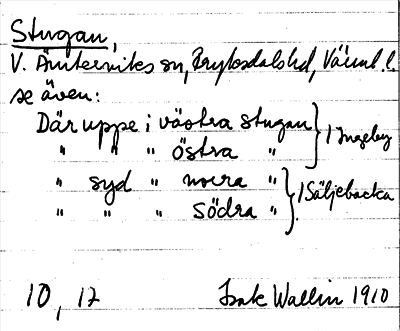 Stugan,
V. Ämterviks sn, Fryksdals hd, Värml. l.
se även:
Där uppe i västra stugan } / Ingeby
" " " östra "
" syd " norra " } / Säljebacka
" " " södra "
10, 12 Isak Wallin 1910